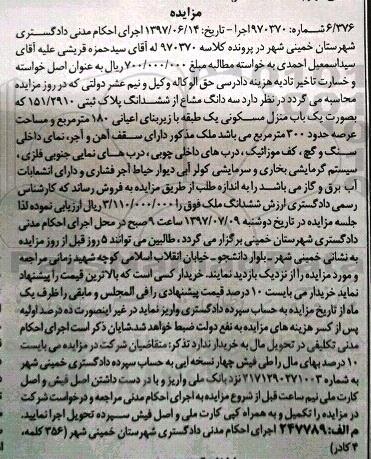 مزایده
۶/۳۷۶شماره: ۹۷۰۳۷۰اجرا - تاریخ: ۱۳۹۷/۰۶/۱۴ اجرای احکام مدنی دادگستری
شهرستان خمینی شهر در پرونده کلاسه ۹۷۰۳۷۰ له آقای سیدحمزه قریشی علیه آقای
سیداسمعیل احمدی به خواسته مطالبه مبلغ ۷۰۰/۰۰۰/۰۰۰ریال به عنوان اصل خواسته
و خسارت تاخیر تادیه هزینه دادرسی حق الوکاله وکیل و نیم عشر دولتی که در روز مزایده
محاسبه می گردد در نظر دارد سه دانگ مشاع از ششدانگ پلاک ثبتی ۱۵۱/۲۹۱۰ که
بصورت یک باب منزل مسکونی یک طبقه با زیربنای اعیانی ۱۸۰مترمربع و مساحت
عرصه حدود ۳۰۰مترمربع می باشد ملک مذکور دارای سقف آهن و آجر، نمای داخلی
سنگ و گچ، کف موزائیک، درب های داخلی چوبی، درب های نمایی جنوبی فلزی،
سیستم گرمایشی بخاری و سرمایشی کولر آبی دیوار حیاط آجر فشاری و دارای انشعابات
آب برق و گاز می باشد را به اندازه طلب از طریق مزایده به فروش رساند که کارشناس
رسمی دادگستری ارزش ششدانگ ملک فوق را ۳/۱۱۰/۰۰۰/۰۰۰ریال ارزیابی نموده لذا
جلسه مزایده در تاریخ دوشنبه ۱۳۹۷/۰۷/۰۹ ساعت ۹ صبح در محل اجرای احکام مدنی
دادگستری شهرستان خمینی برگزار می گردد، طالبین می توانند ۵ روز قبل از روز مزایده
به نشانی خمینی شهر - بلوار دانشجو - خیابان انقلاب اسلامی کوچه شهید زمانی مراجعه
و مورد مزایده را از نزدیک بازدید نمایند. خریدار کسی است که بالاترین قیمت را پیشنهاد
نماید خریدار می بایست ۱۰ درصد قیمت پیشنهادی را فی المجلس و مابقی را ظرف یک
ماه از تاریخ مزایده به حساب سپرده دادگستری واریز نماید در غیر اینصورت ده درصد اولیه
پس از کسر هزینه های مزایده به نفع دولت ضبط خواهد شد.شایان ذکر است اجرای احکام
مدنی تکلیفی در تحویل مال به خریدار ندارد تذکر: متقاضیان شرکت در مزایده می بایست
۱۰ درصد بهای مال را طی فیش چهار نسخه ایی به حساب سپرده دادگستری خمینی شهر
به شماره ۲۱۷۱۲۹۰۲۷۱۰۰۳ نزد بانک ملی واریز و با در دست داشتن اصل فیش و اصل
کارت ملی نیم ساعت قبل از شروع مزایده به اجرای احکام مدنی مراجعه و درخواست شرکت
در مزایده را تکمیل و به همراه کپی کارت ملی و اصل فیش سپرده تحویل اجرا نمایند.
م الف: ۲۴۷۷۸۹ اجرای احکام مدنی دادگستری شهرستان خمینی شهر (۳۵۶ کلمه،
۴ کادر)